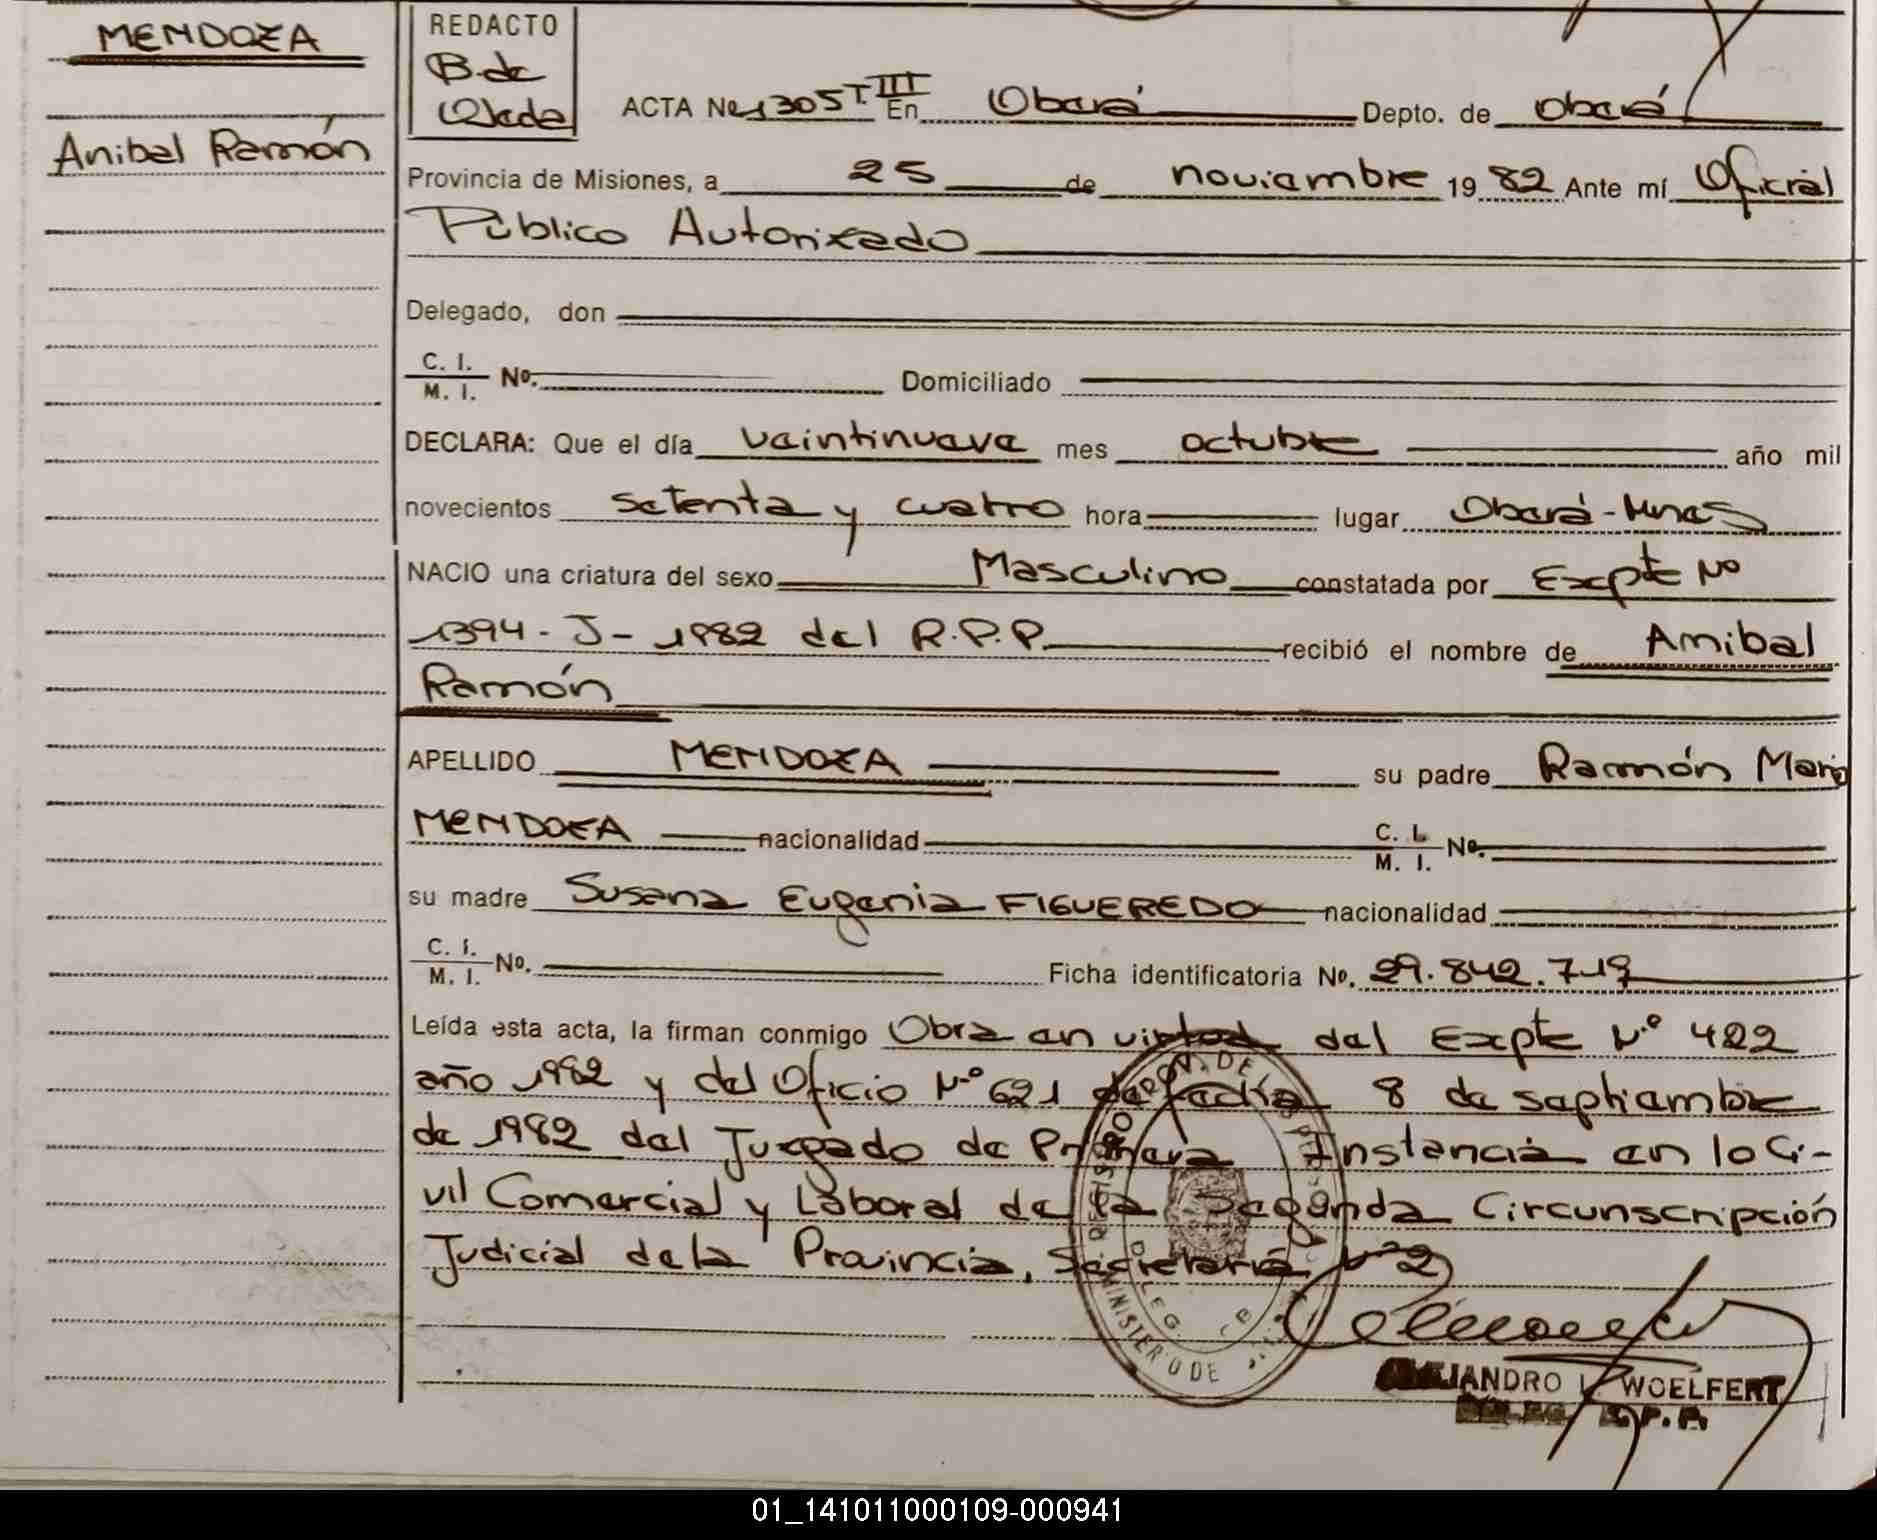 MENDOZA
Anibal Ramón
REDACTO
B. de
Ojeda
ACTA Nº 1305 T. III En Oberá Depto. de Oberá
Provincia de Misiones, a 25 de noviembre 1982 Ante mí Oficial
Público Autorizado
Delegado, don
C. I.
M. I. Nº. Domiciliado
DECLARA: Que el día veintinueve mes octubre año mil
novecientos setenta y cuatro hora lugar Oberá-Mnes
NACIO una criatura del sexo Masculino constatada por Expte Nº
1394-J-1982 del R.P.P. recibió el nombre de Anibal
Ramón
APELLIDO MENDOZA su padre Ramón Mario
MENDOZA nacionalidad C. I.
M. I. Nº.
su madre Susana Eugenia FIGUEREDO nacionalidad
C. I.
M. I. Nº. Ficha identificatoria Nº. 29.842.719
Leída esta acta, la firman conmigo Obra en virtud del Expte Nº 422
año 1982 y del Oficio Nº 621 de fecha 8 de septiembre
de 1982 del Juzgado de Primera Instancia en lo Ci-
vil Comercial y Laboral de la Segunda Circunscripción
Judicial de la Provincia, Secretaría Nº 2
MINISTERIO DE
ALEJANDRO L. WOELFERT
DELEG. R.P.P.
01_141011000109-000941